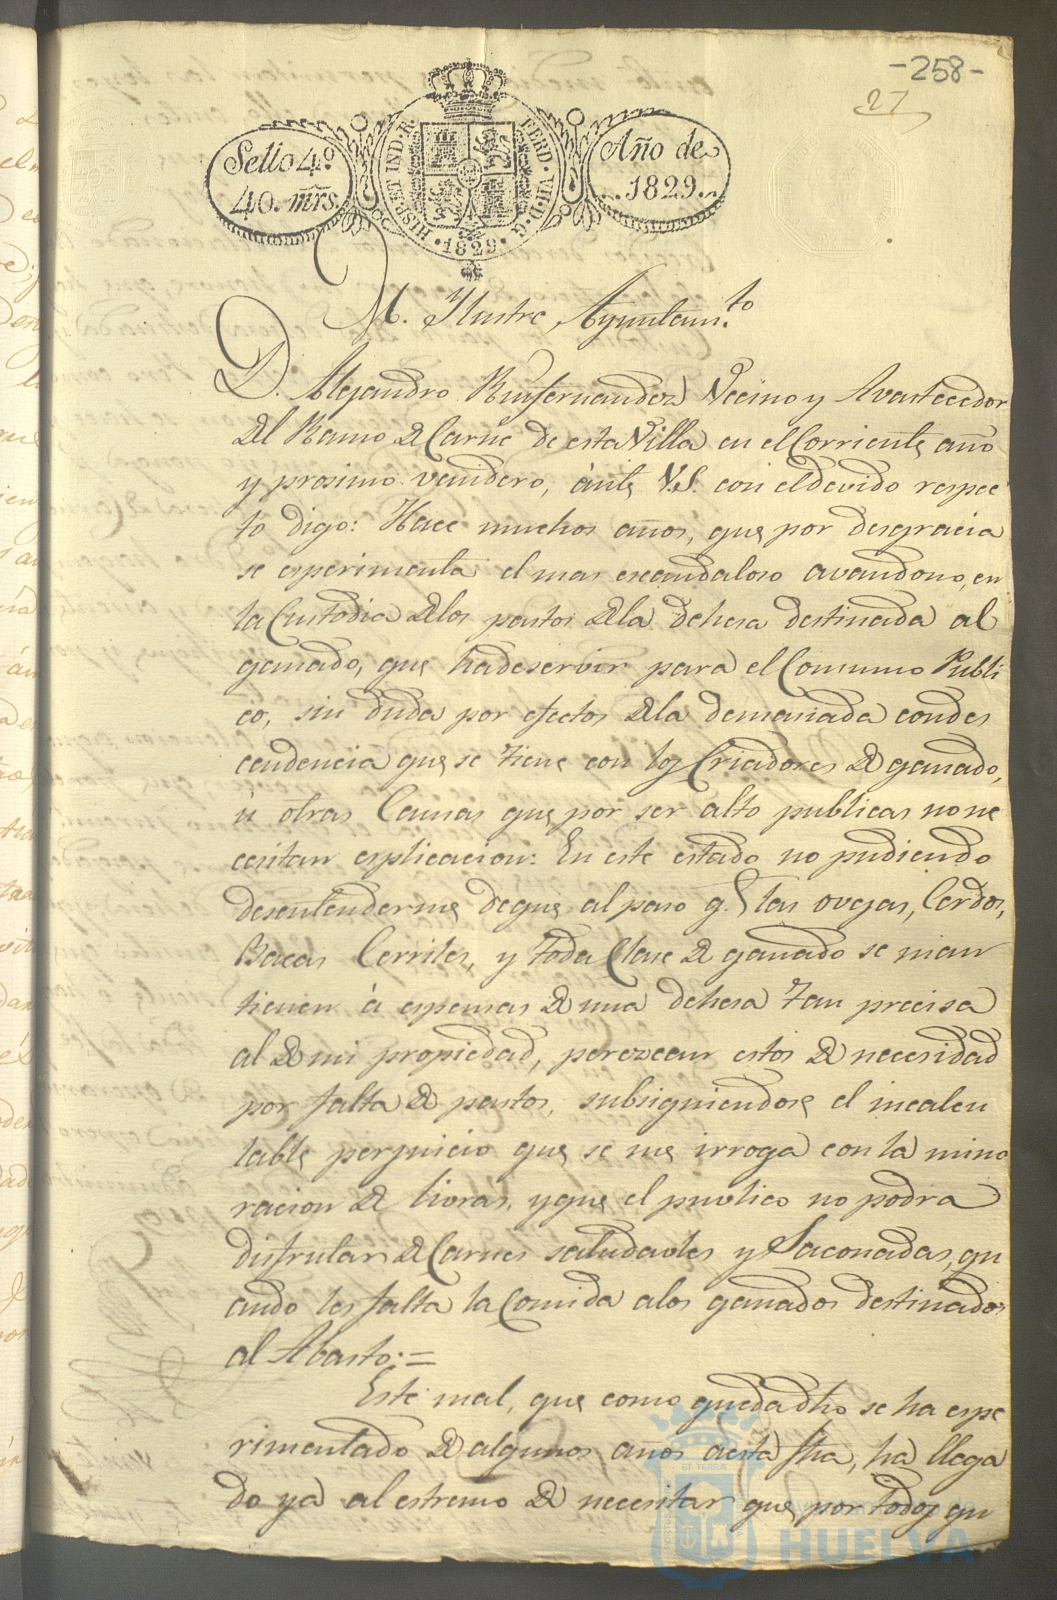 -258-
27
Sello 4º
40. mrs.
HISP. ET IND. R.
FERD. VII. D. G.
1829
Año de
1829.
M. Ylustre Ayuntam.to
D. Alejandro Ruifernandez Vecino y Avastecedor
del Ramo de Carne de esta Villa en el Corriente año
y prosimo venidero, ánte V.S. con el devido respec
to digo: Hace muchos años, que por desgracia
se esperimenta el mas escandaloso avandono, en
la Custodia de los pastos de la dehesa destinada al
ganado, que hadeservir para el Consumo Publi
co, sin duda por efectos de la demasiada condes
cendencia que se tiene con los Criadores de ganado,
ù otras Causas que por ser alto publicas no ne
cesitan esplicacion: En este estado no pudiendo
desentenderme deque al paso q.e las ovejas, Cerdos,
Bacas Cerriles, y toda Clase de ganado se man
tienen à espensas de una dehesa tan precisa
al de mi propiedad, perezcan estos de necesidad
por falta de pastos, subsiguiendose el incalcu
lable perjuicio que se me irroga con la mino
racion de livras, y que el puvlico no podrà
disfrutar de Carnes saludavles y Saconadas, qu
ando les falta la Comida a los ganados destinados
al Abasto: =
Este mal, que como queda dho se ha espe
rimentado de algunos años aesta fha, ha llega
do ya al estremo de necesitar que por todos qu
ET TERRÆ
HUELVA